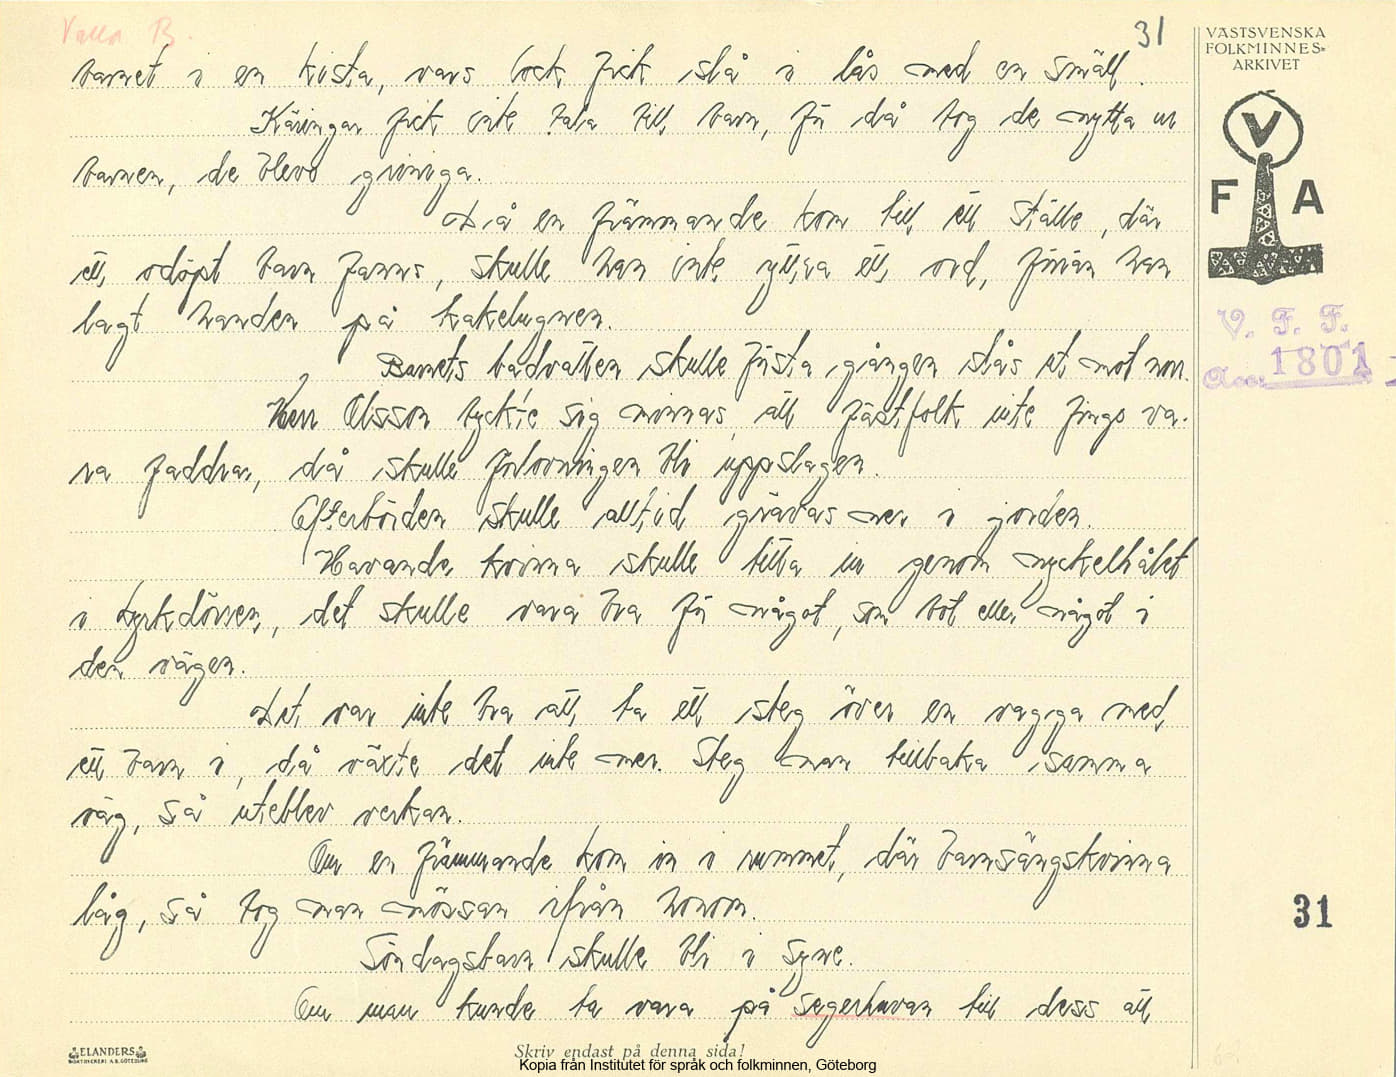 Valla B.
31
barnet i en kista, vars lock fick slå i lås med en smäll.
Käringar fick inte tala till barn, för då tog de nytta ur
barnen, de blevo giriga.
Då en främmande kom till ett ställe, där
ett odöpt barn fanns, skulle han inte yttra ett ord, förrän han
lagt handen på kakelugnen.
Barnets badvatten skulle första gången slås ut mot norr.
Herr Olsson tyckte sig minnas, att fästfolk inte fingo va-
ra faddrar, då skulle förlovningen bli uppslagen.
Efterbörden skulle alltid grävas ner i jorden.
Havande kvinna skulle titta in genom nyckelhålet
i kyrkdörren, det skulle vara bra för något, som bot eller något i
den vägen.
Det var inte bra att ta ett steg över en vagga med
ett barn i, då växte det inte mer. Steg man tillbaka samma
väg, så uteblev verkan.
Om en främmande kom in i rummet, där barnsängskvinna
låg, så tog man mössan ifrån honom.
Söndagsbarn skulle bli i syne.
Om man kunde ta vara på segerhuvan till dess att
VÄSTSVENSKA
FOLKMINNES-
ARKIVET
V
F A
V. F. F.
Acc. 1801
31
ELANDERS
BOKTRYCKERI A.B. GÖTEBORG
Skriv endast på denna sida!
Kopia från Institutet för språk och folkminnen, Göteborg